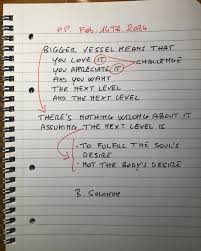 P.P. Feb. 14TH. 2024
BIGGER VESSEL MEANS THAT
YOU LOVE IT
CHALLENGE
YOU APPRECIATE IT
AND YOU WANT
THE NEXT LEVEL
AND THE NEXT LEVEL
THERE'S NOTHING WRONG ABOUT IT
ASSUMING THE NEXT LEVEL IS
· TO FULFILL THE SOUL'S
DESIRE
· NOT THE BODY'S DESIRE
B. SOLOMON